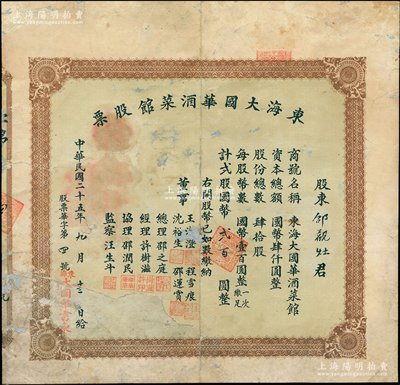 上海陽明拍賣
www.yangmingauction.com
東海大國華酒菜館股票
股東邰觀灶君
商號名稱 東海大國華酒菜館
資本總額 國幣肆仟圓整
股份總數 肆拾股
每股幣數 國幣壹百圓整 一次繳足
計弍股國幣弍百圓整
右開股幣已如數繳納
董事
程雪痕
沈裕生 邵運賓
總理邵之庭
經理許樹滋
協理邵潤民
監察汪生斗
中華民國二十五年九月十二日給
股票華字第四號